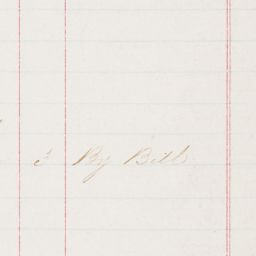 3 By Bill